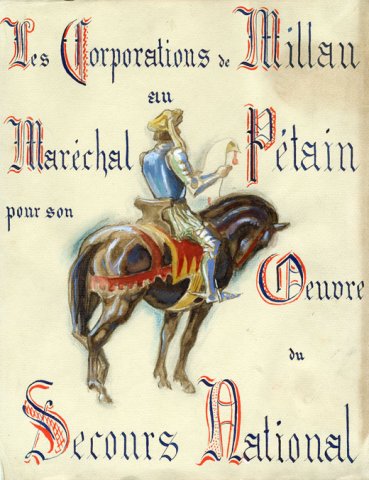 Les Corporations de Millau
au
Maréchal Pétain
pour son
Oeuvre
du
Secours National